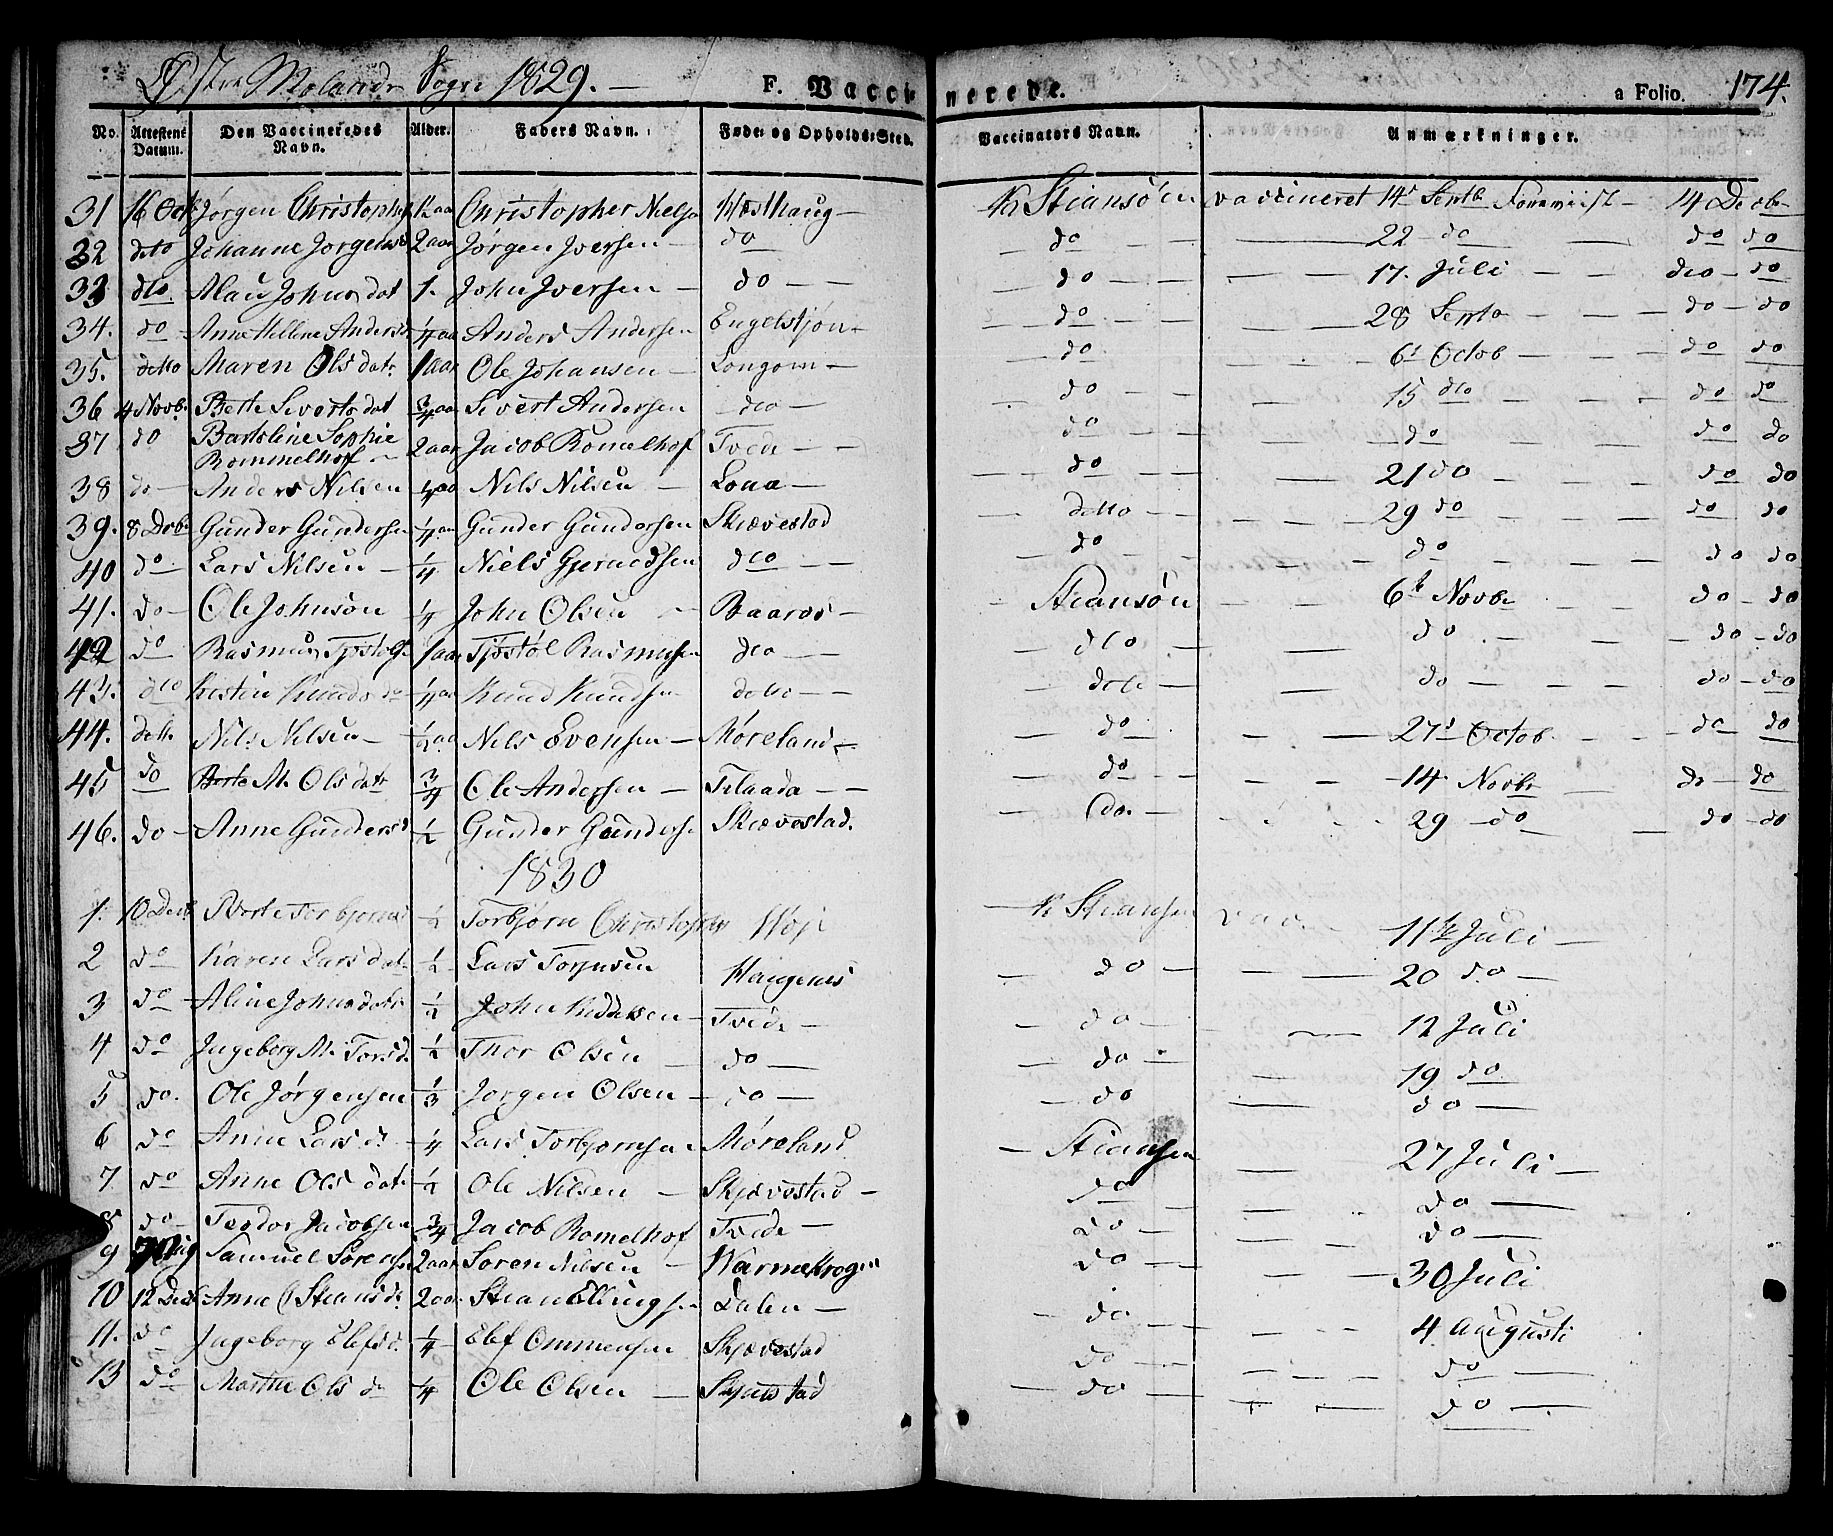 Østre Molands Sogn 1829. — F. Vaccinerede. a Folio. 174.
No. Attestens Datum. Den Vaccineredes Navn. Alder. Faders Navn. Føde- og Opholds-Sted. Vaccinators Navn. Anmærkninger.
31 16 Octb Jørgen Christophs 1½ aar Christopher Nielsen — K Stiansøn vaccineret 14d Septb 14 Decbr
32 dito Johanne Jørgensd 2 aar Jørgen Iversen — do — do — 22 do — do do
33 dto. Johnsdat 1. John Iversen — do — — do — 17. Juli — — dto — do
34. do Anne Helline Andersd ¼ aar Anders Andersen Engelstjøn — do — 28 Septb — do — do
35. ditto Maren Olsdatr 1 aar Ole Johansen — Longom — do 6d Octob — do do
36 4 Novb. Berte Sivertsdat ¾ aar Sivert Andersen — dto — do — 15 dto — do do
37 do Bartoline Sophie Rommelhoff — 2 aar Jacob Romelhof Tvede — — do — do — do do
38 do — Anders Nilsen ¼ aar Nils Nilsen — Lona — do — 21 do — do do
39. 8 Decb. Gunder Gundersen ¼ aar Gunder Gundersen Skiævestad ditto — 29 do — do do
40 do — Lars Nilsen — ¼ Niels Gjerulfsen dto — — do — do — do do
41. do — Ole Johnsøn ¼ John Olsen — — Stiansøn — — 6te Novbr — do — do
42 do Rasmus Tjøstols 1 aar Tjøstøl Rasmusen dto — dto — do — do — do
43. dto Kirsten Knudsd ¼ aar Knud Knudsen ditto — — ditto — do — do — do
44. ditto Nils Nilsen — ½ aar Nils Evensen — Møreland — do — 27d Octob — do do
45 do Berte M. Olsdatr ¾ Ole Andersen — Flaada — — do — 14 Novbr — do — do
46. do — Anne Gundersd ½ Gunder Gundersen Skiævestad. do. — 29 do — do — do
1830
1. 10 Decb Berte Torbjørnsd ½ Torbjørn Christophers — K Stiansen vac. — 11te Juli —
2 do Karen Larsdat. ½ Lars Torjusen Haugenes — do — 20 do —
3 do Aline Johnsdatr ½ John — Tvede — do — 12 Juli
4 do Ingeborg M. Torsd. ½ Thor Olsen — do — do — 19 do
5 do. Ole Jørgensen ⅓ Jørgen Olsen — do — do — do —
6 do Anne Larsd. ¼ Lars Torbjørnsen Møreland — Stiansen — 27 Juli —
7 do Anne Olsdat. ½ Ole Nilsen — Skjævestad — do — do —
8 do Teodor Jacobsen ¾ Jacob Romelhof Tvede — do — do —
9 Samuel Sørensen 2 aar Søren Nilsen — Warmekrogen do — 30 Juli
10 12 Decb Anne Stiansd. 2 aar Stian Ellingsen Dalen — do — 4 Augusti
11. do Ingeborg Elefsd. ¼ Elef Ommensen Skjævestad do — do —
13 do Marthe Olsd. ¼ Ole Olsen — Skjævestad do — do —